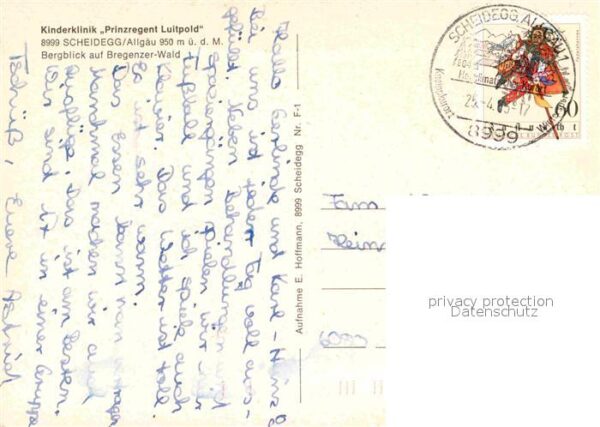 Kinderklinik „Prinzregent Luitpold"
8999 SCHEIDEGG/Allgäu 950 m ü. d. M.
Bergblick auf Bregenzer-Wald
Hallo Gerlinde und Karl-Heinz!
Bei uns ist jeder Tag voll aus-
gefüllt. Neben Behandlungen und
Spaziergängen spielen wir
Fußball und ich spiele auch
Klavier. Das Wetter ist toll.
Es ist sehr warm.
Das Essen kann man
Manchmal machen wir auch
Ausflüge. Das ist am besten.
Wir sind in einer Gruppe
Tschüß, Eure Astrid
Aufnahme E. Hoffmann, 8999 Scheidegg Nr. F-1
SCHEIDEGG, ALLGÄU 1
8999
60
Fam
Hein
privacy protection
Datenschutz